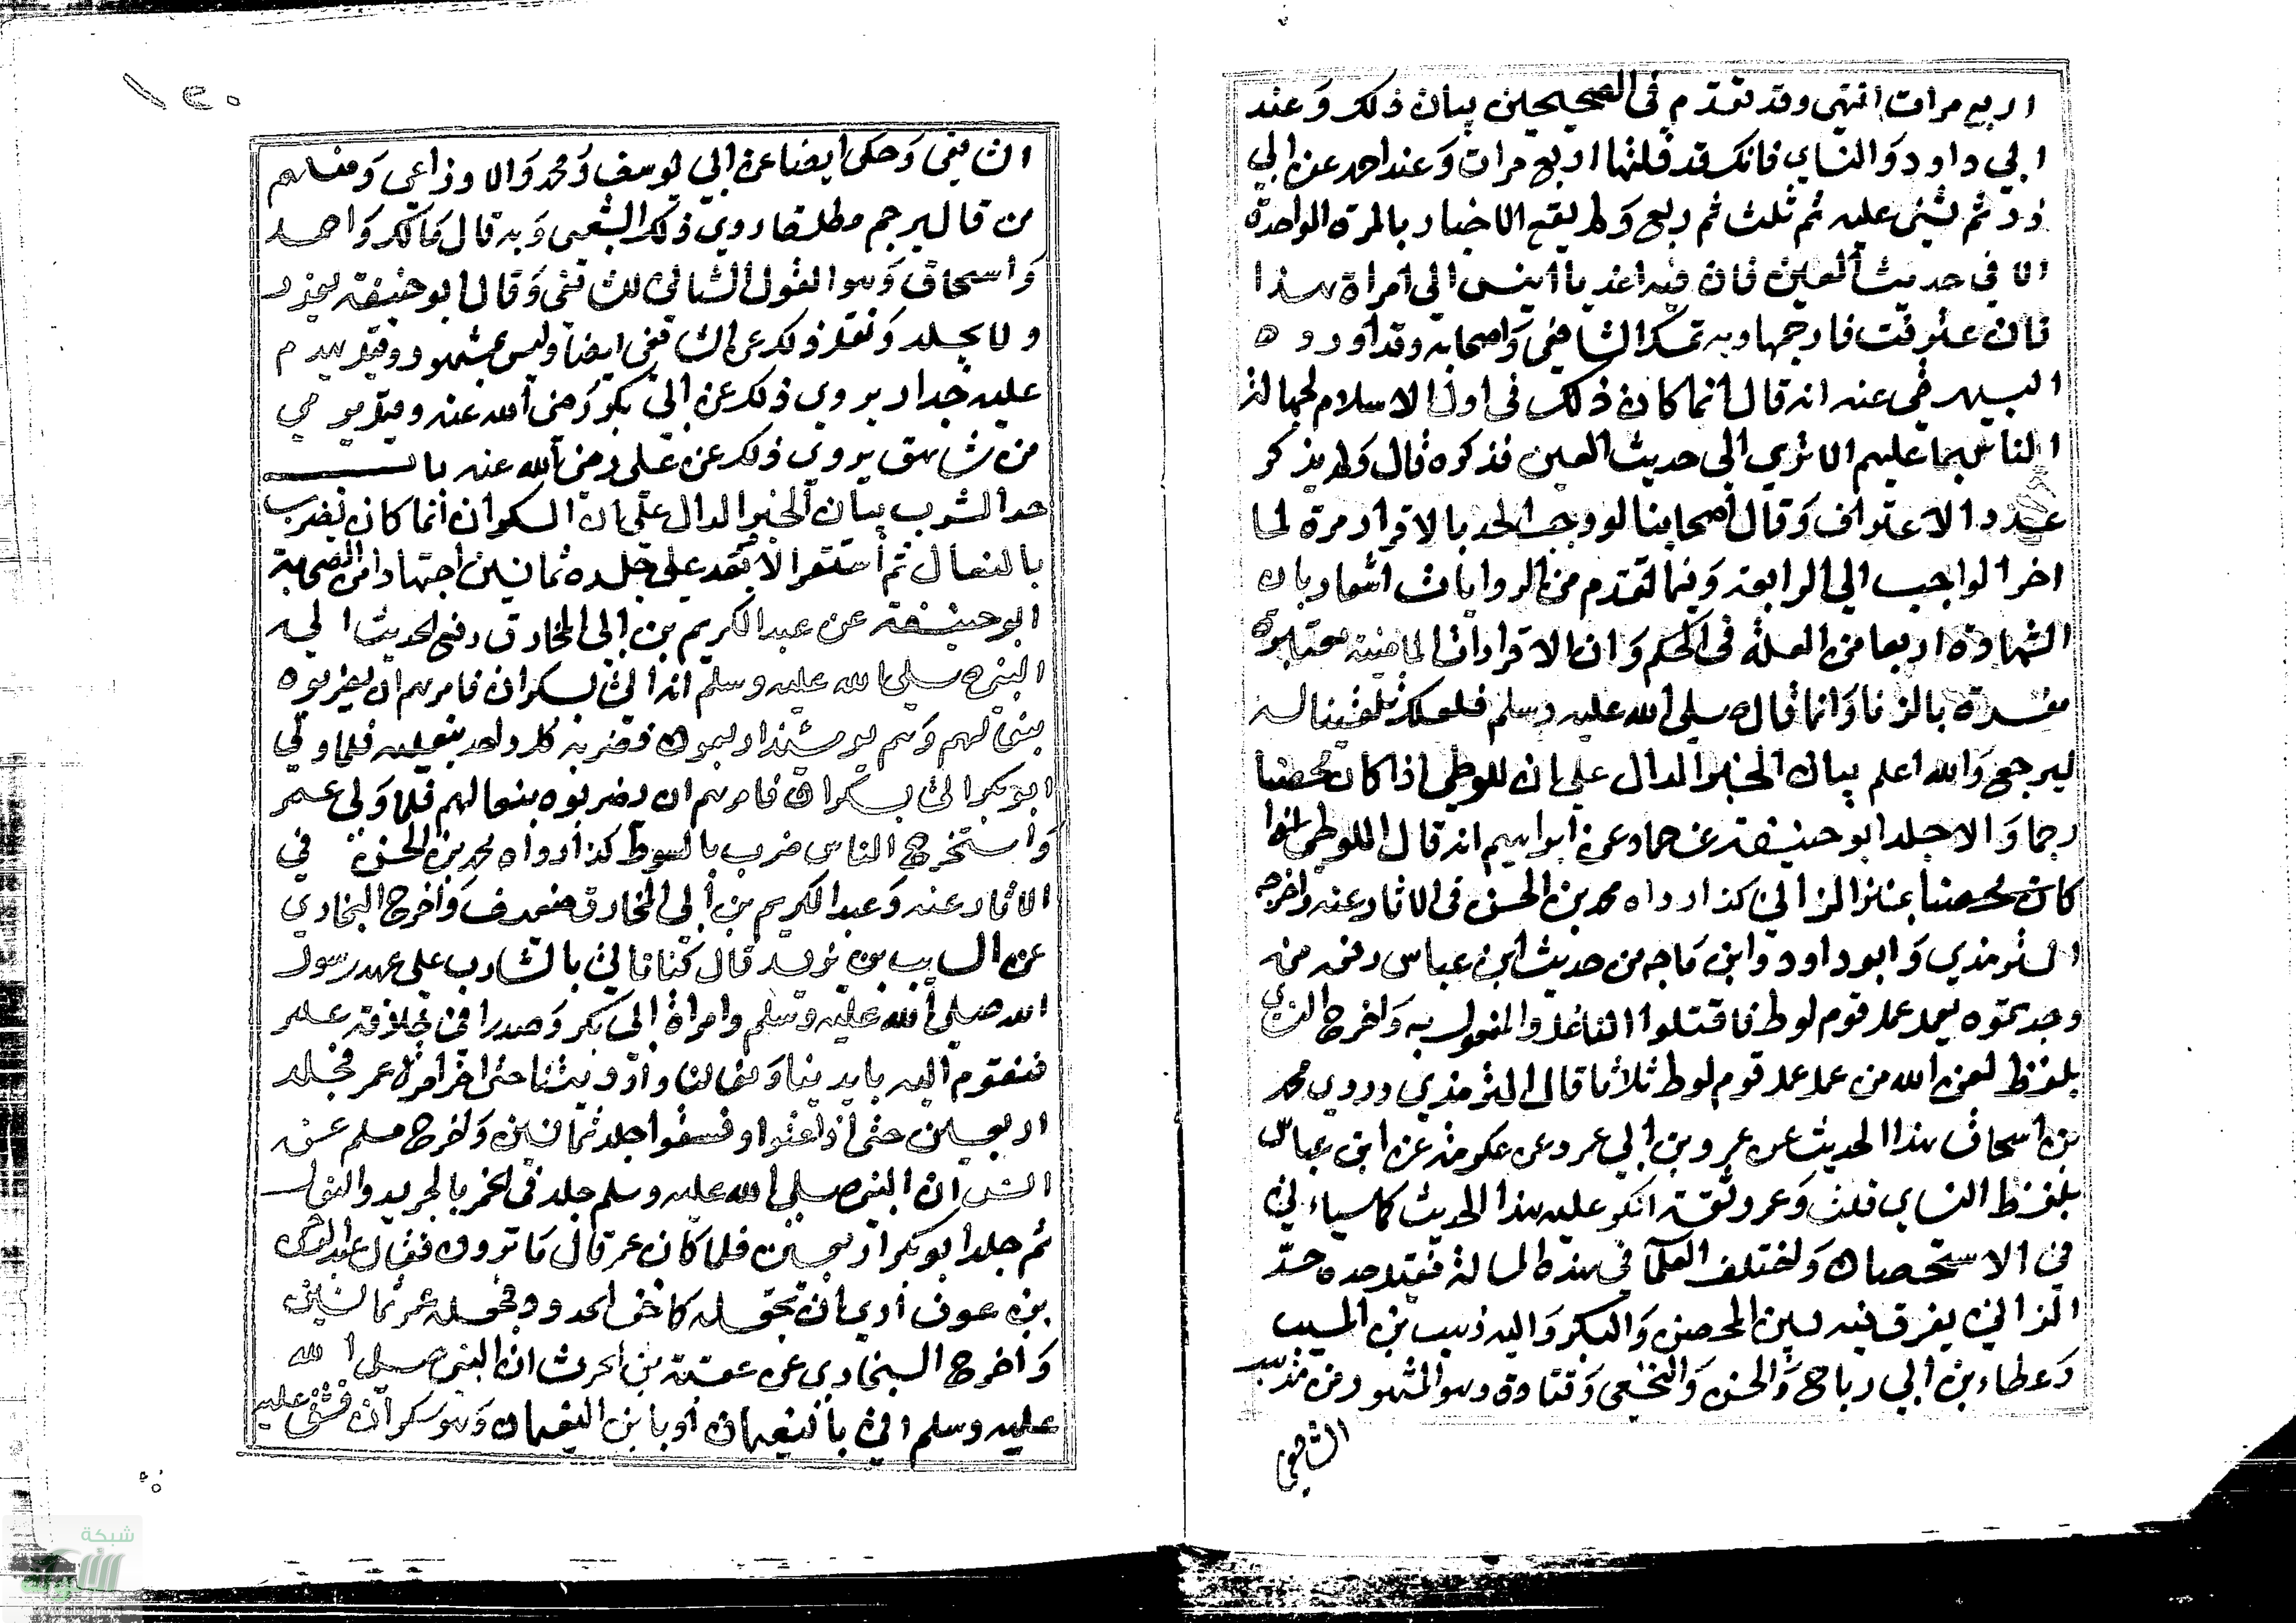 اربع مرات انتهى وقد تقدم في الصحيحين بيان ذلك وعند
ابي داود والنساي فانك قد قلتها اربع مرات وعند احمد عن ابي
ذر ثم ثنى عليه ثم ثلث ثم ربع ولم يقع الاخبار بالمرة الواحدة
الا في حديث العين فان فيه اغد يا انيس الى امراة هذا
فان اعترفت فارجمها وبه تمسك الشافعي واصحابه وقد اورده
عنه انه قال انما كان ذلك في اول الاسلام
الناس بما عليهم الا ترى الى حديث العين فذكره قال ولم يذكر
عدد الاعتراف وقال اصحابنا لو وجب الحد بالاقرار مرة لما
اخر الواجب الى الرابعة وفيما تقدم من الروايات اشعار بان
الشهادة اربعا من العلة في الحكم وان الاقرارات الماضية معتبرة
بالزنا وانما قال صلى الله عليه وسلم فلعلك تلقينا له
ليرجع والله اعلم بيان الخبر الدال على ان للوطي اذا كان محصنا
رجما والا جلد ابو حنيفة عن حماد عن ابراهيم انه قال اللوطي اذا
كان محصنا بمنزلة الزاني كذا رواه محمد بن الحسن في الاثار عنه واخرج
الترمذي وابو داود وابن ماجه من حديث ابن عباس رفعه من
وجدتموه يعمل عمل قوم لوط فاقتلوا الفاعل والمفعول به واخرج الذي
بلفظ لعن الله من عمل عمل قوم لوط ثلاثا قال الترمذي وروى محمد
بن اسحاق هذا الحديث عن عمرو بن ابي عمرو عن عكرمة عن ابن عباس
بلفظ النساي قلت وعمرو ثقة انكر عليه هذا الحديث كما سياتي
في الاستحصان واختلف العلما في هذه المسالة فقيل حده حد
الزاني يفرق فيه بين المحصن والبكر واليه ذهب بن المسيب
وعطاء بن ابي رباح والحسن والنخعي وقتادة وهو المشهور من مذهب
الشافعي
١٣٠
الشافعي وحكي ايضا عن ابي يوسف ومحمد والاوزاعي ومنهم
من قال يرجم مطلقا روي ذلك الشعبي وبه قال مالك واحمد
واسحاق وهو القول الثاني للشافعي وقال ابو حنيفة يعزر
ولا يجلد ونقل ذلك عن الشافعي ايضا وليس بمشهور وقيل يهدم
عليه جدار يروى ذلك عن ابي بكر رضي الله عنه وقيل يرمي
من شاهق يروى ذلك عن علي رضي الله عنه باب
حد الشرب بيان الخبر الدال على ان السكران انما كان يضرب
بالنعال ثم استقر الا بعد على جلده ثمانين اجتهادا من الصحابة
ابو حنيفة عن عبد الكريم بن ابي المخارق رفع الحديث الى
النبي صلى الله عليه وسلم انه اتي بسكران فامرهم ان يضربوه
بنعالهم وهم يومئذ اربعون فضربه كل واحد بنعليه فلما ولي
ابو بكر اتي بسكران فامرهم ان يضربوه بنعالهم فلما ولي عمر
واستخرج الناس ضرب بالسوط كذا رواه محمد بن الحسن في
الاثار عنه وعبد الكريم بن ابي المخارق ضعف واخرج البخاري
عن السايب بن يزيد قال كنا ناتي بالشارب على عهد رسول
الله صلى الله عليه وسلم وامراة ابي بكر وصدرا في خلافة عمر
فنقوم اليه بايدينا ونعالنا وارديتنا حتى اخر امرة عمر فجلد
اربعين حتى اذا عتوا وفسقوا جلد ثمانين واخرج مسلم عن
انس ان النبي صلى الله عليه وسلم جلد في الخمر بالجريد والنعال
ثم جلد ابو بكر اربعين فلما كان عمر قال ما ترون فقال عبد الرحمن
بن عوف ارى ان تجعله كاخف الحدود فجعله عمر ثمانين
واخرج البخاري عن عقبة بن الحرث ان النبي صلى الله
عليه وسلم اتي بالنعيمان او بابن النعيمان وهو سكران فشق عليه
شبكة